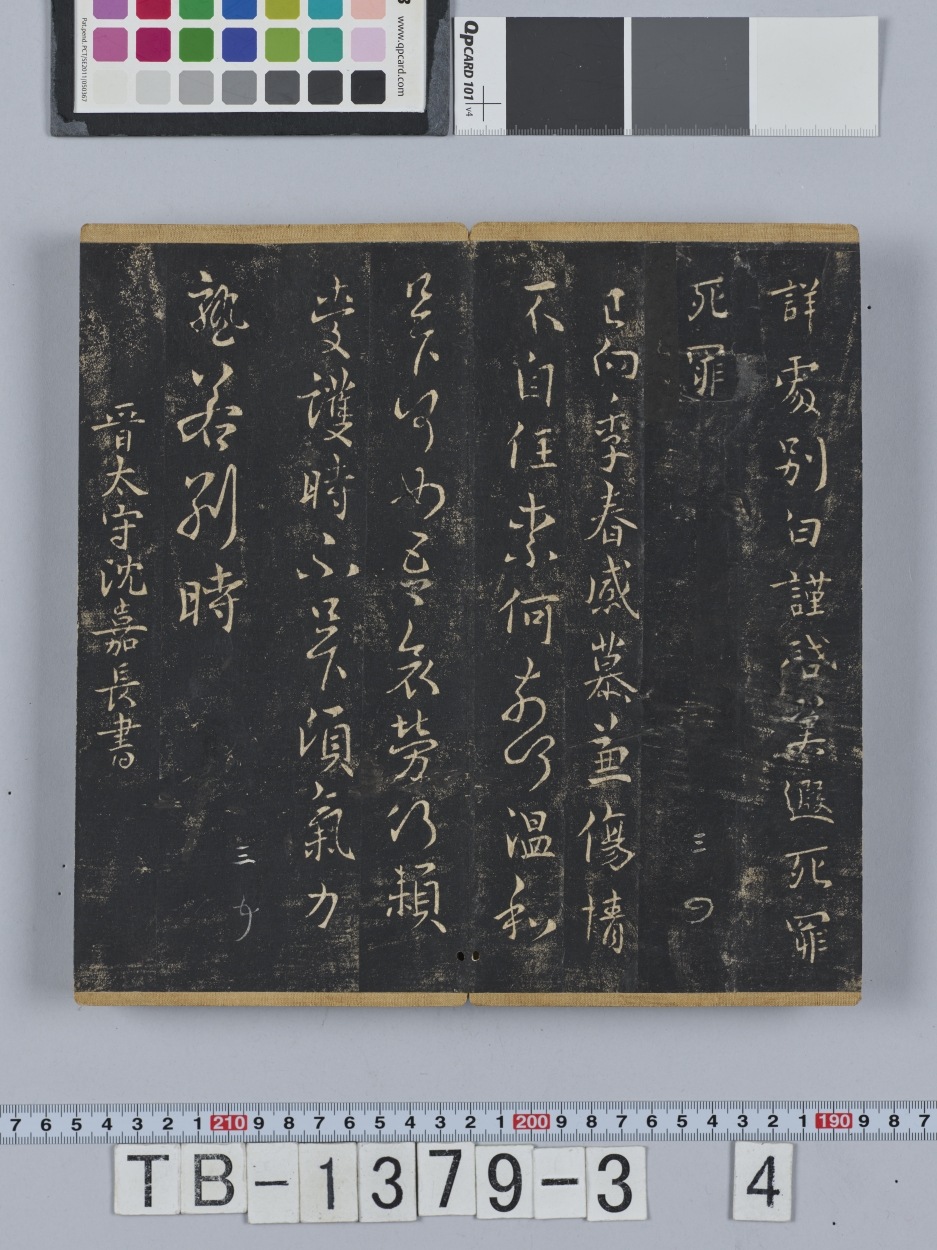 詳處別白謹啓葉遐死罪
死罪
三 四
已向季春感慕兼傷情
不自任柰何奈何溫和
足下何如吾哀勞仍頼
愛護時不足下須氣力
孰若別時
三
晉太守沈嘉長書
Pat.pend. PCT/SE2011/050367
www.qpcard.com
QPCARD 101 v4
7 6 5 4 3 2 1 210 9 8 7 6 5 4 3 2 1 200 9 8 7 6 5 4 3 2 1 190 9 8 7
TB-1379-3 4